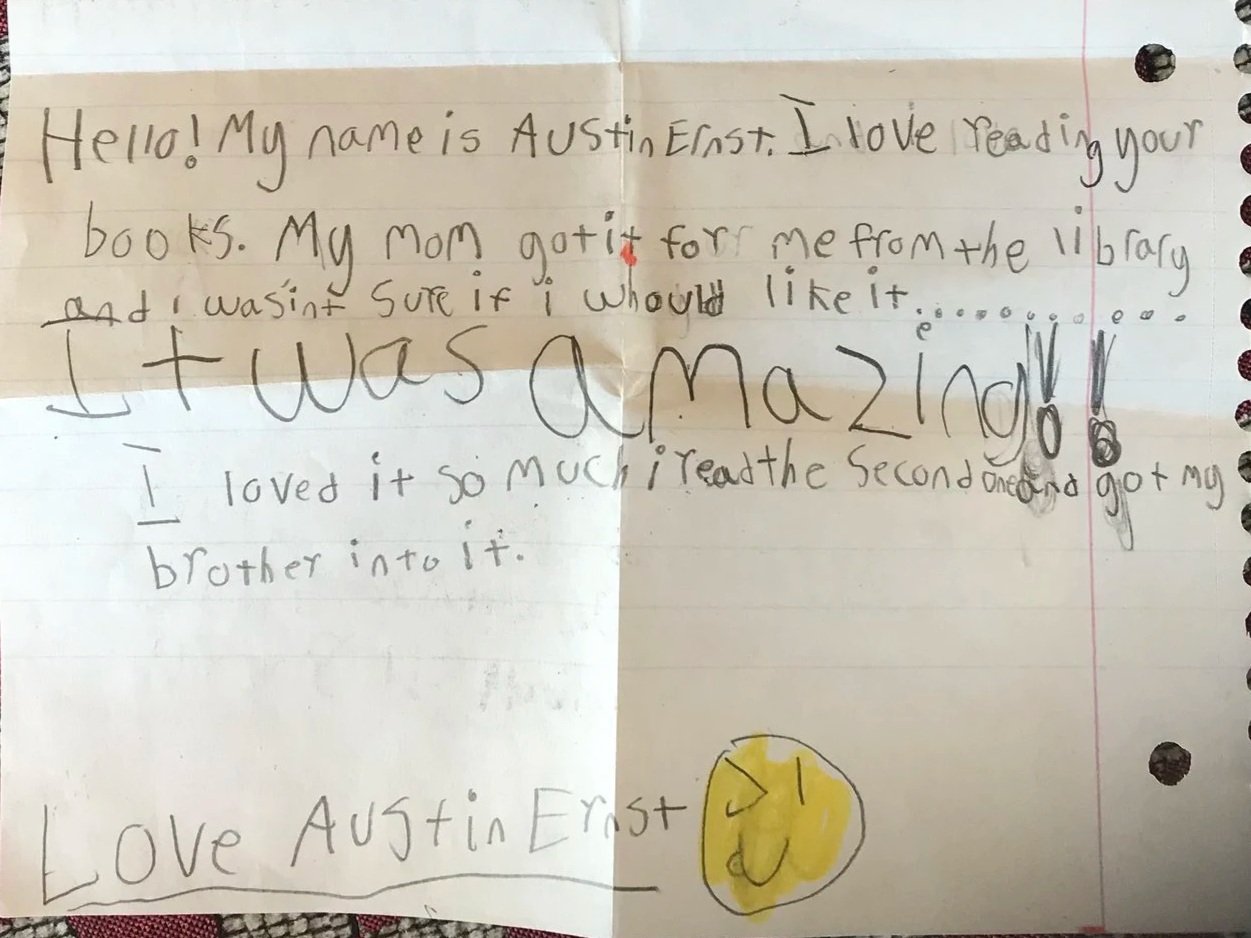 Hello! My name is Austin Ernst. I love reading your
books. My mom got it for me from the library
and i wasint sure if i whould like it............
It was amazing!!
I loved it so much i read the second one and got my
brother into it.
Love Austin Ernst